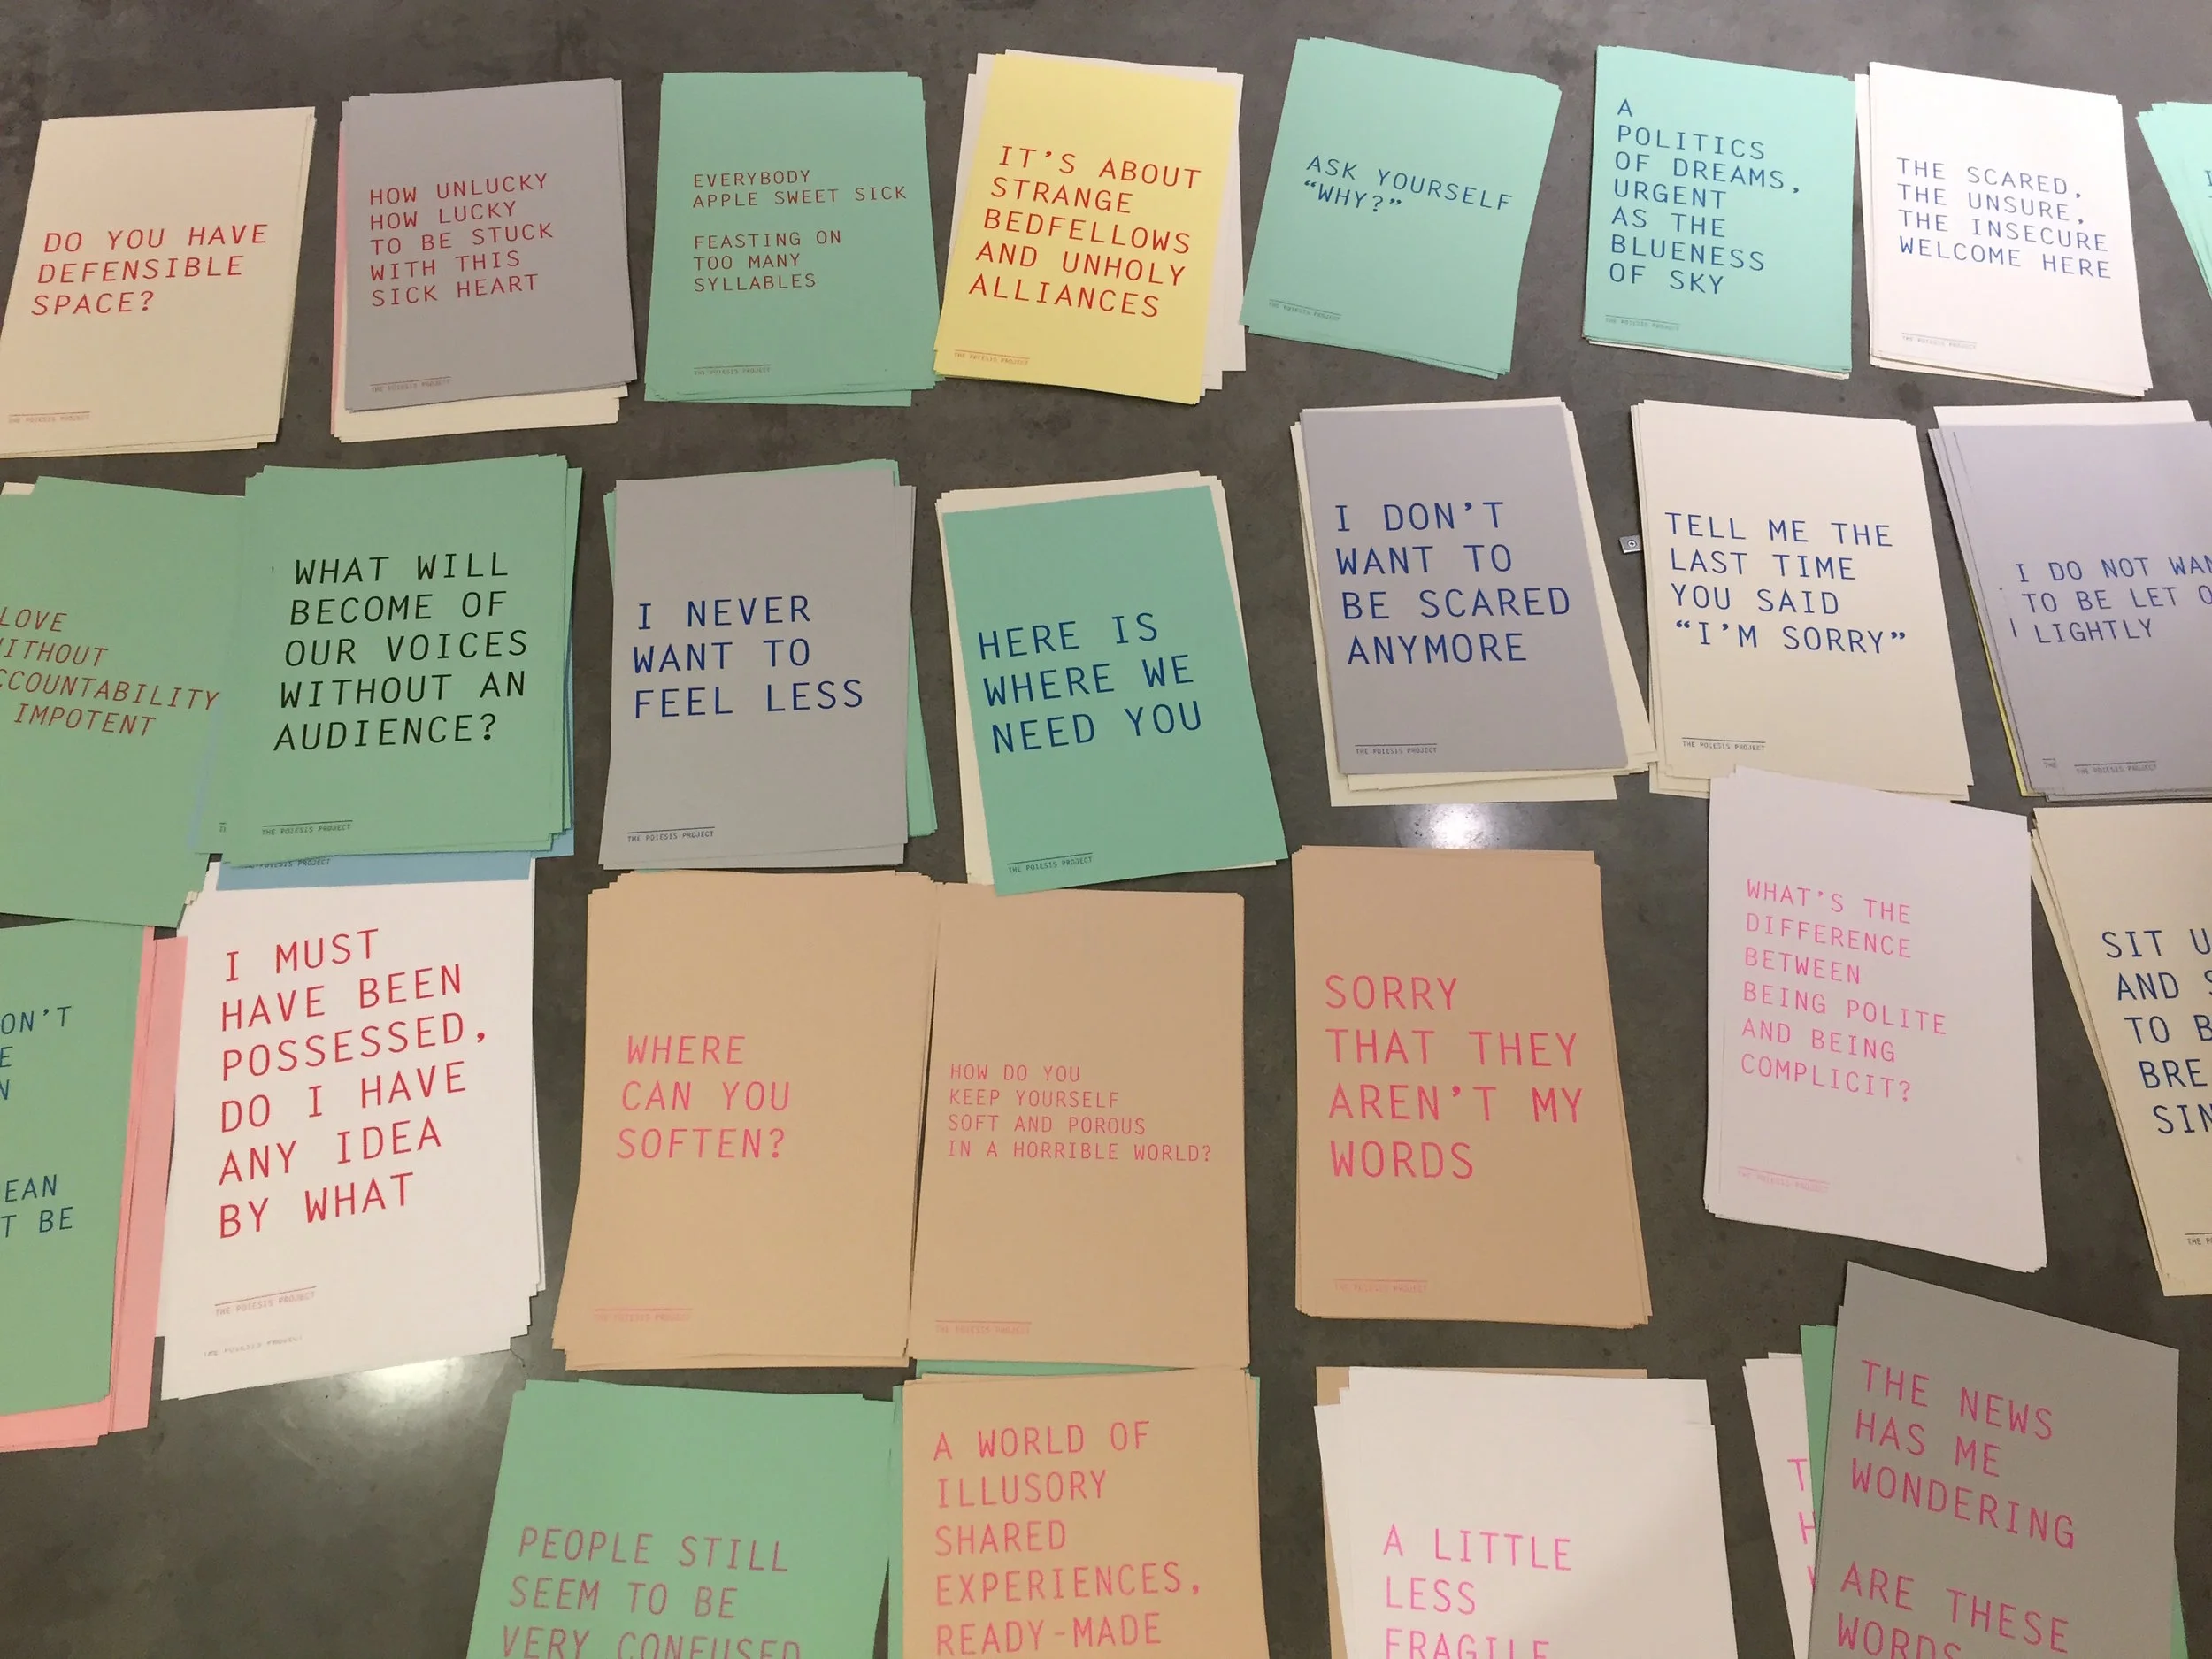 DO YOU HAVE
DEFENSIBLE
SPACE?
THE POIESIS PROJECT
HOW UNLUCKY
HOW LUCKY
TO BE STUCK
WITH THIS
SICK HEART
THE POIESIS PROJECT
EVERYBODY
APPLE SWEET SICK
FEASTING ON
TOO MANY
SYLLABLES
THE POIESIS PROJECT
IT'S ABOUT
STRANGE
BEDFELLOWS
AND UNHOLY
ALLIANCES
THE POIESIS PROJECT
ASK YOURSELF
“WHY?”
THE POIESIS PROJECT
A
POLITICS
OF DREAMS,
URGENT
AS THE
BLUENESS
OF SKY
THE POIESIS PROJECT
THE SCARED,
THE UNSURE,
THE INSECURE
WELCOME HERE
THE POIESIS PROJECT
LOVE
IMPOTENT
WHAT WILL
BECOME OF
OUR VOICES
WITHOUT AN
AUDIENCE?
THE POIESIS PROJECT
THE POIESIS PROJECT
I NEVER
WANT TO
FEEL LESS
THE POIESIS PROJECT
HERE IS
WHERE WE
NEED YOU
THE POIESIS PROJECT
I DON'T
WANT TO
BE SCARED
ANYMORE
THE POIESIS PROJECT
TELL ME THE
LAST TIME
YOU SAID
“I'M SORRY”
THE POIESIS PROJECT
I DO NOT
TO BE LET
LIGHTLY
THE POIESIS PROJECT
BE
I MUST
HAVE BEEN
POSSESSED,
DO I HAVE
ANY IDEA
BY WHAT
THE POIESIS PROJECT
THE POIESIS PROJECT
WHERE
CAN YOU
SOFTEN?
THE POIESIS PROJECT
HOW DO YOU
KEEP YOURSELF
SOFT AND POROUS
IN A HORRIBLE WORLD?
THE POIESIS PROJECT
SORRY
THAT THEY
AREN'T MY
WORDS
THE POIESIS PROJECT
WHAT'S THE
DIFFERENCE
BETWEEN
BEING POLITE
AND BEING
COMPLICIT?
THE POIESIS PROJECT
SIT
AND
TO
THE
PEOPLE STILL
SEEM TO BE
VERY CONFUSED
A WORLD OF
ILLUSORY
SHARED
EXPERIENCES,
READY-MADE
A LITTLE
LESS
FRAGILE
THE NEWS
HAS ME
WONDERING
ARE THESE
WORDS